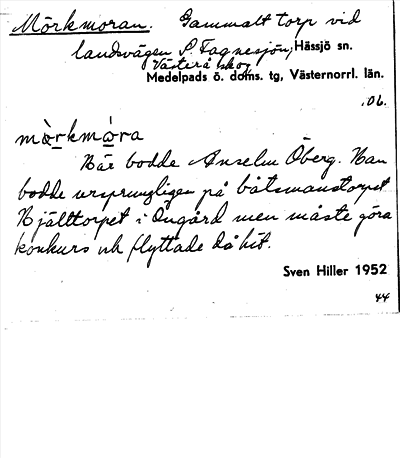 Mörkmoran. Gammalt torp vid
landsvägen S. Fagnesjön, Hässjö sn.
Västerå skog
Medelpads ö. doms. tg, Västernorrl. län.
.06.
mörkmóra
Här bodde Anselm Öberg. Han
bodde ursprungligen på båtsmanstorpet
Hjälttorpet i Öngård men måste göra
konkurs och flyttade då hit.
Sven Hiller 1952
44